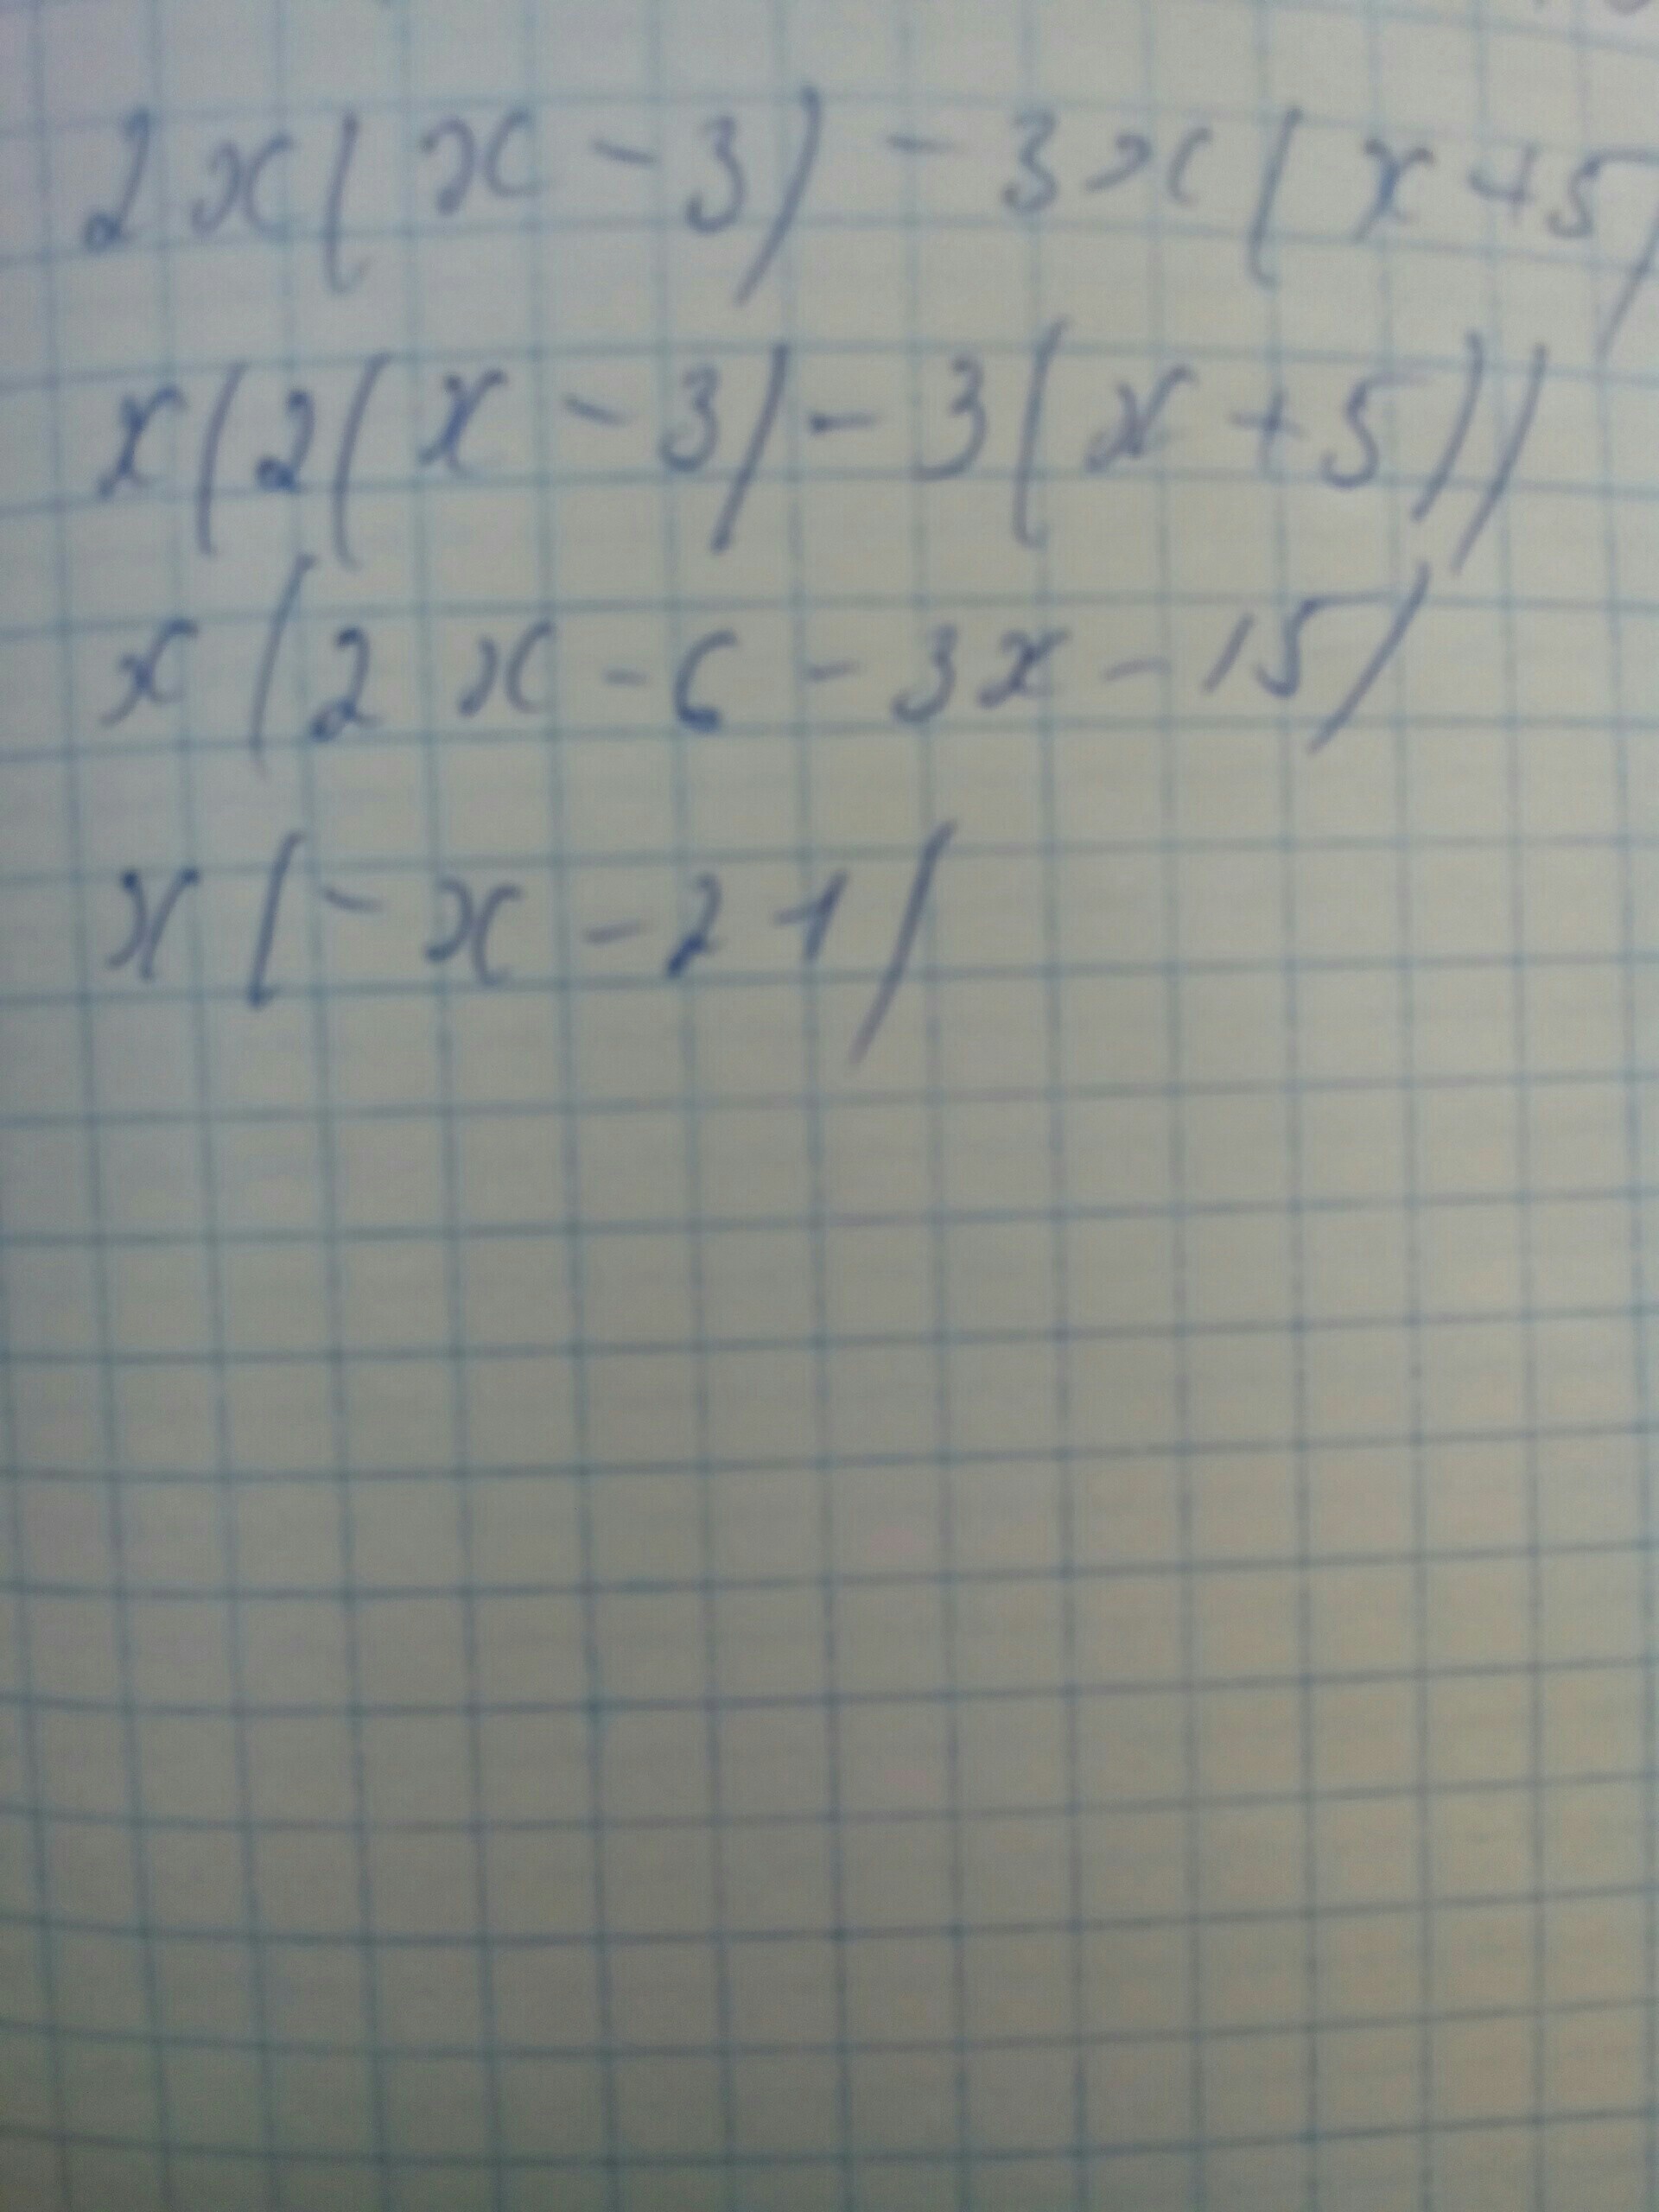 2x(x-3)-3x(x+5)
x(2(x-3)-3(x+5))
x(2x-6-3x-15)
x(-x-21)